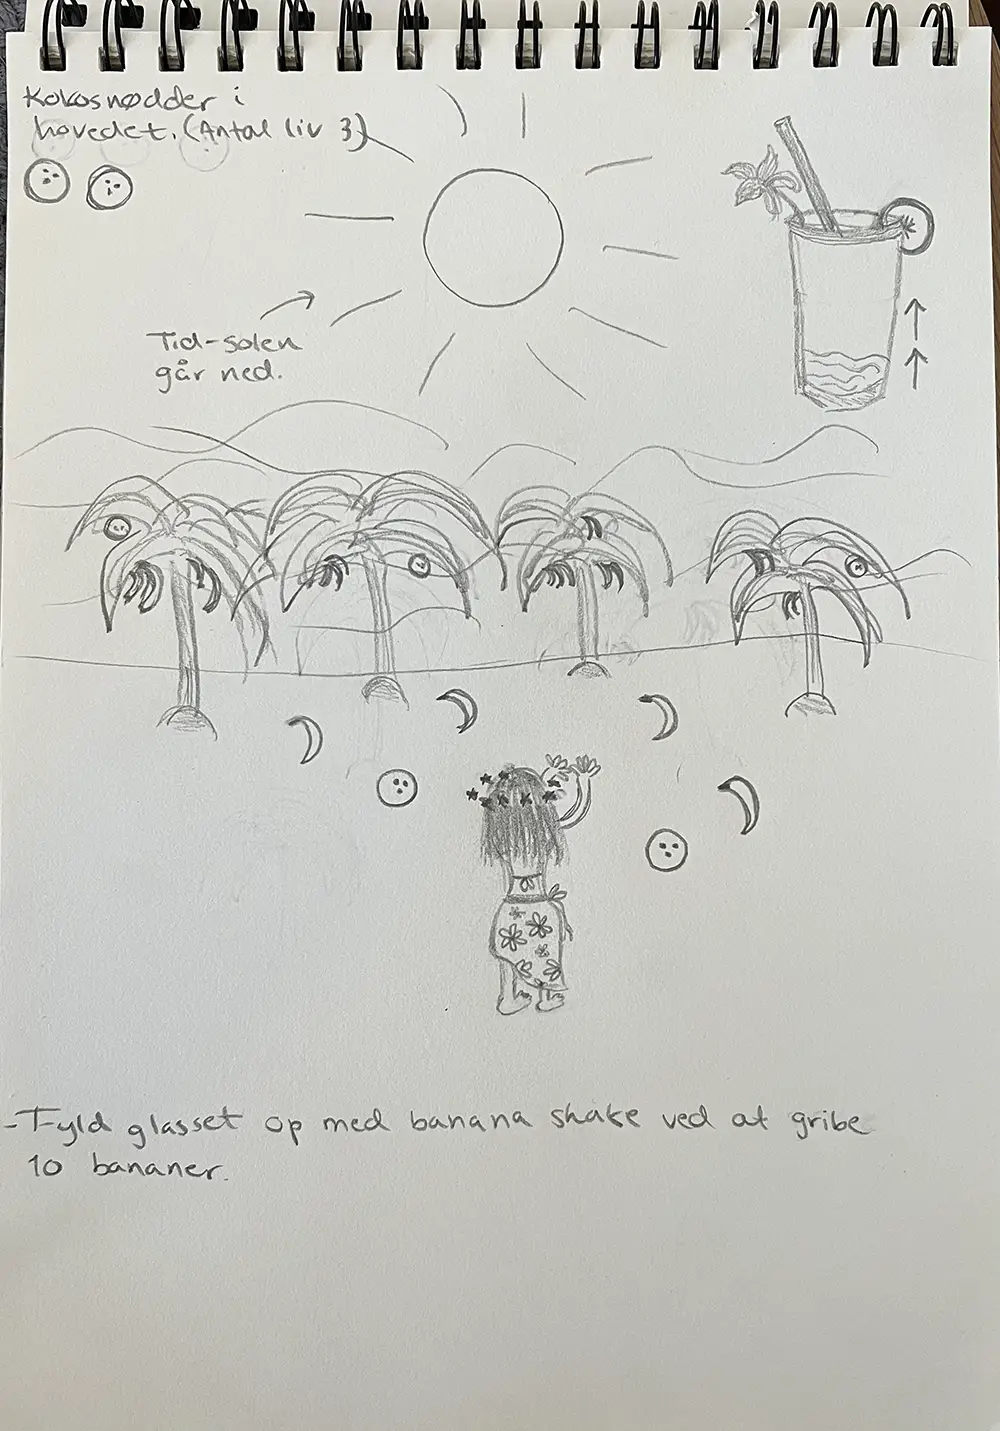 Kokosnødder i
hovedet. (Antal liv 3)
Tid-solen
går ned.
- Fyld glasset op med banana shake ved at gribe
10 bananer.